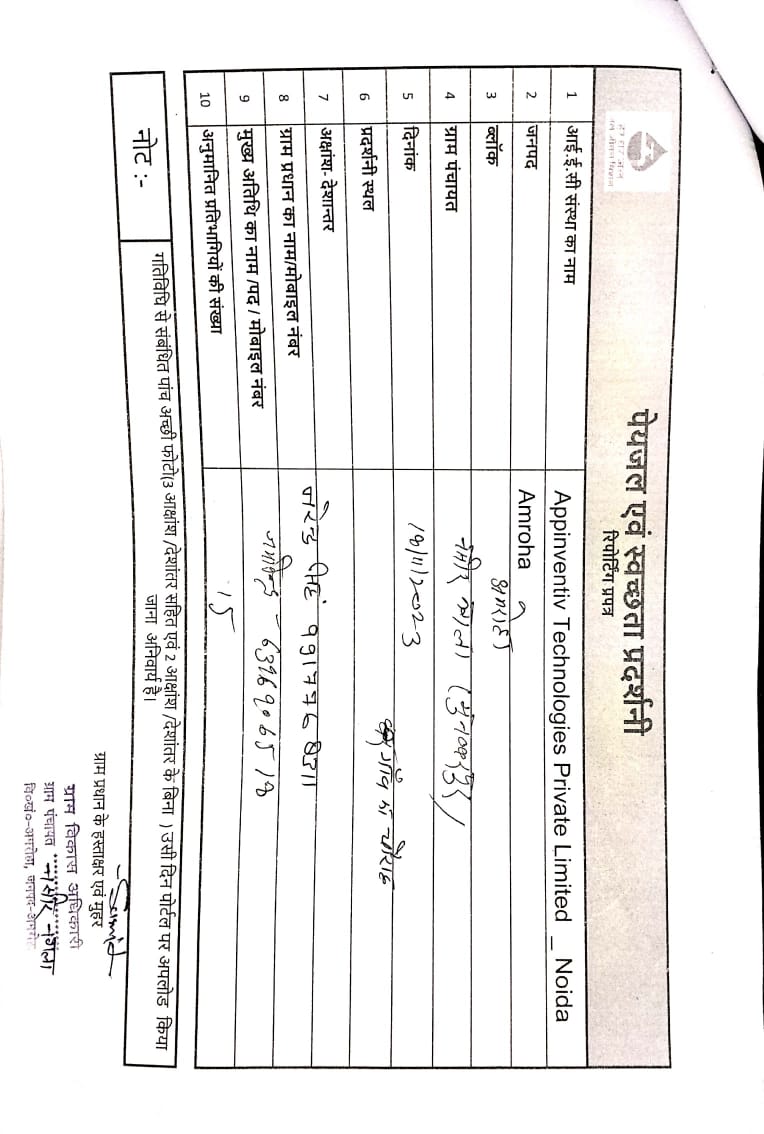 हर घर जल
जल जीवन मिशन
पेयजल एवं स्वच्छता प्रदर्शनी
रिपोर्टिंग प्रपत्र
1 आई.ई.सी संस्था का नाम Appinventiv Technologies Private Limited _ Noida
2 जनपद Amroha
3 ब्लॉक अमरोहा
4 ग्राम पंचायत
5 दिनांक
6 प्रदर्शनी स्थल गाँव के चौराहे
7 अक्षांश- देशान्तर
8 ग्राम प्रधान का नाम/मोबाइल नंबर सिंह
9 मुख्य अतिथि का नाम /पद / मोबाइल नंबर
10 अनुमानित प्रतिभागियों की संख्या 15
नोट :- गतिविधि से संबंधित पांच अच्छी फोटो(3 आक्षांश /देशांतर सहित एवं 2 आक्षांश /देशांतर के बिना ) उसी दिन पोर्टल पर अपलोड किया
जाना अनिवार्य है।
ग्राम प्रधान के हस्ताक्षर एवं मुहर
ग्राम विकास अधिकारी
ग्राम पंचायत
वि०खं०-अमरोहा, जनपद-अमरोहा